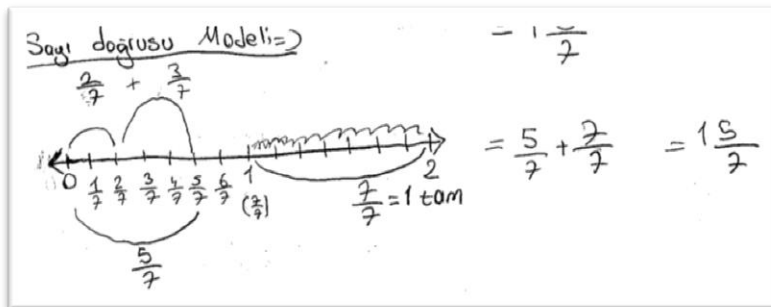 Sayı doğrusu Modeli=)
2/7 + 3/7
0 1/7 2/7 3/7 4/7 5/7 6/7 1 (7/7) 2
5/7
7/7 = 1 tam
= 5/7 + 7/7 = 1 5/7